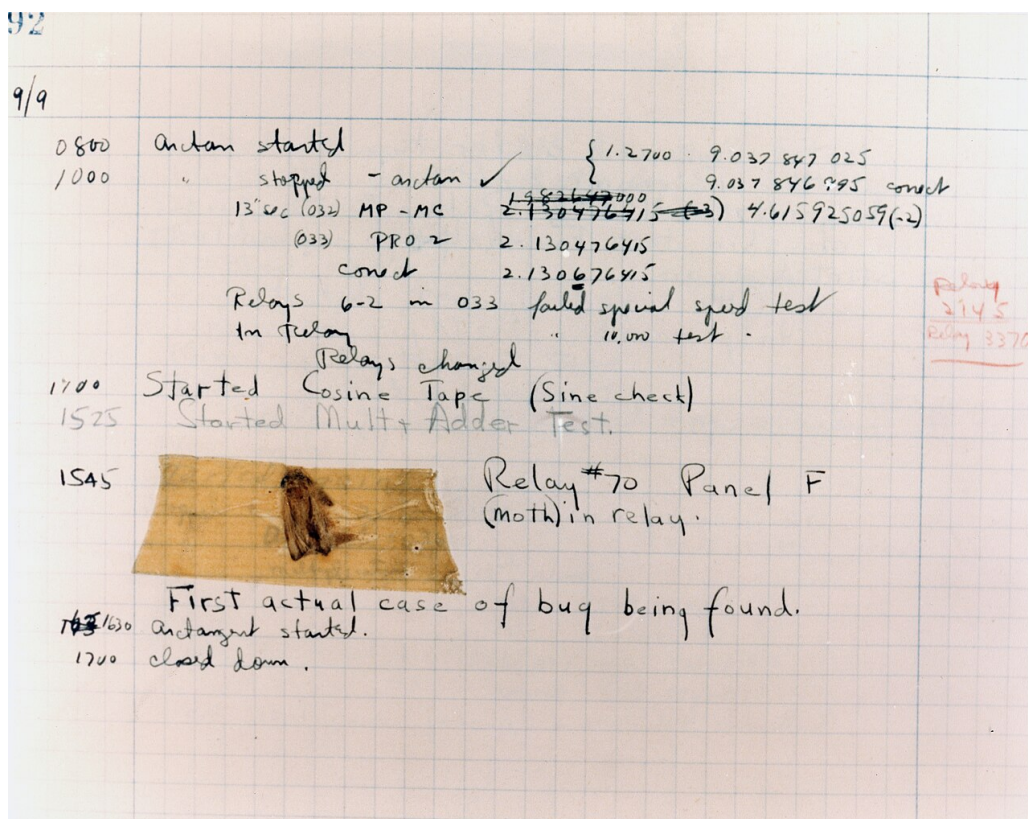 92
9/9
0800 arctan started { 1.2700 9.037 847 025
1000 " stopped - arctan ✓ 9.037 846 995 conect
13"sec (032) MP - MC 2.130476415 (-3) 4.615925059(-2)
(033) PRO 2 2.130476415
conect 2.130676415
Relays 6-2 in 033 failed special speed test
In Relay " 10,000 test .
Relays changed
Relay
2145
Relay 3370
1700 Started Cosine Tape (Sine check)
1525 Started Mult + Adder Test.
1545 Relay #70 Panel F
(moth) in relay.
First actual case of bug being found.
1630 arctangent started.
1700 closed down.